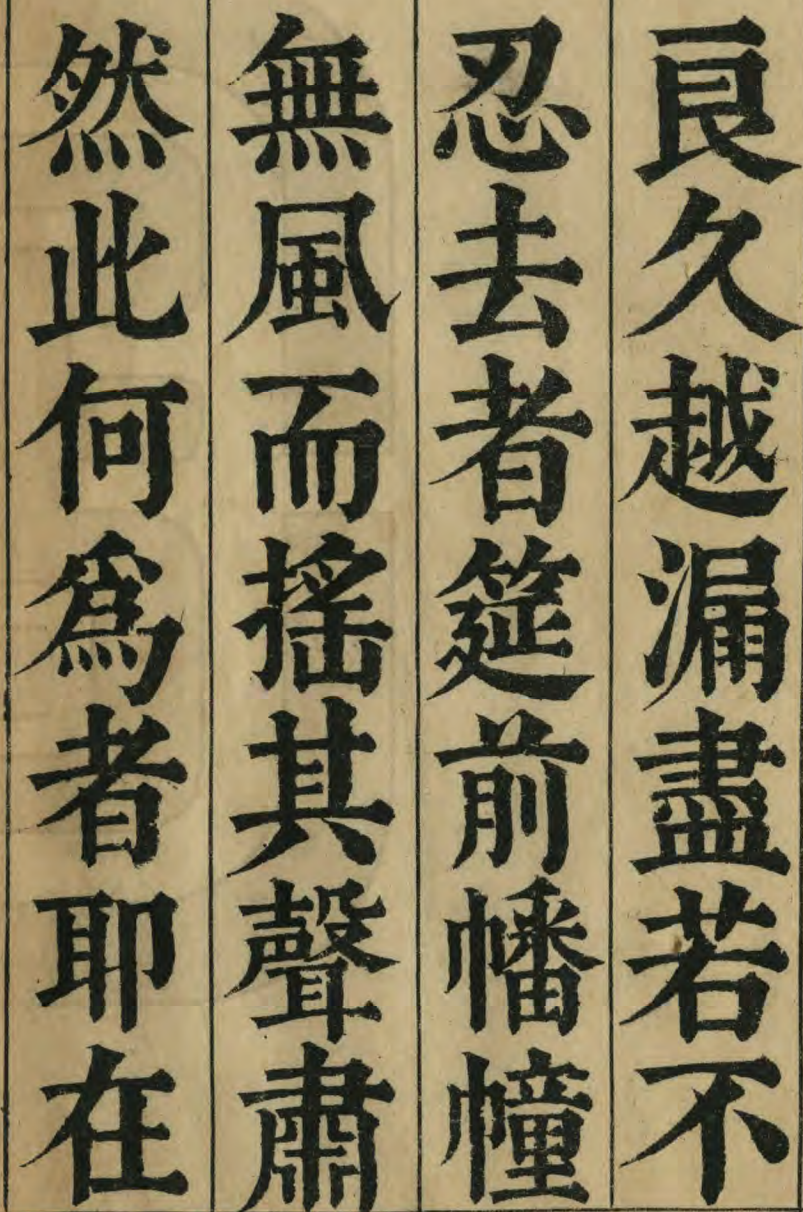 良久越漏盡若不
忍去者筵前幡幢
無風而搖其聲肅
然此何爲者耶在